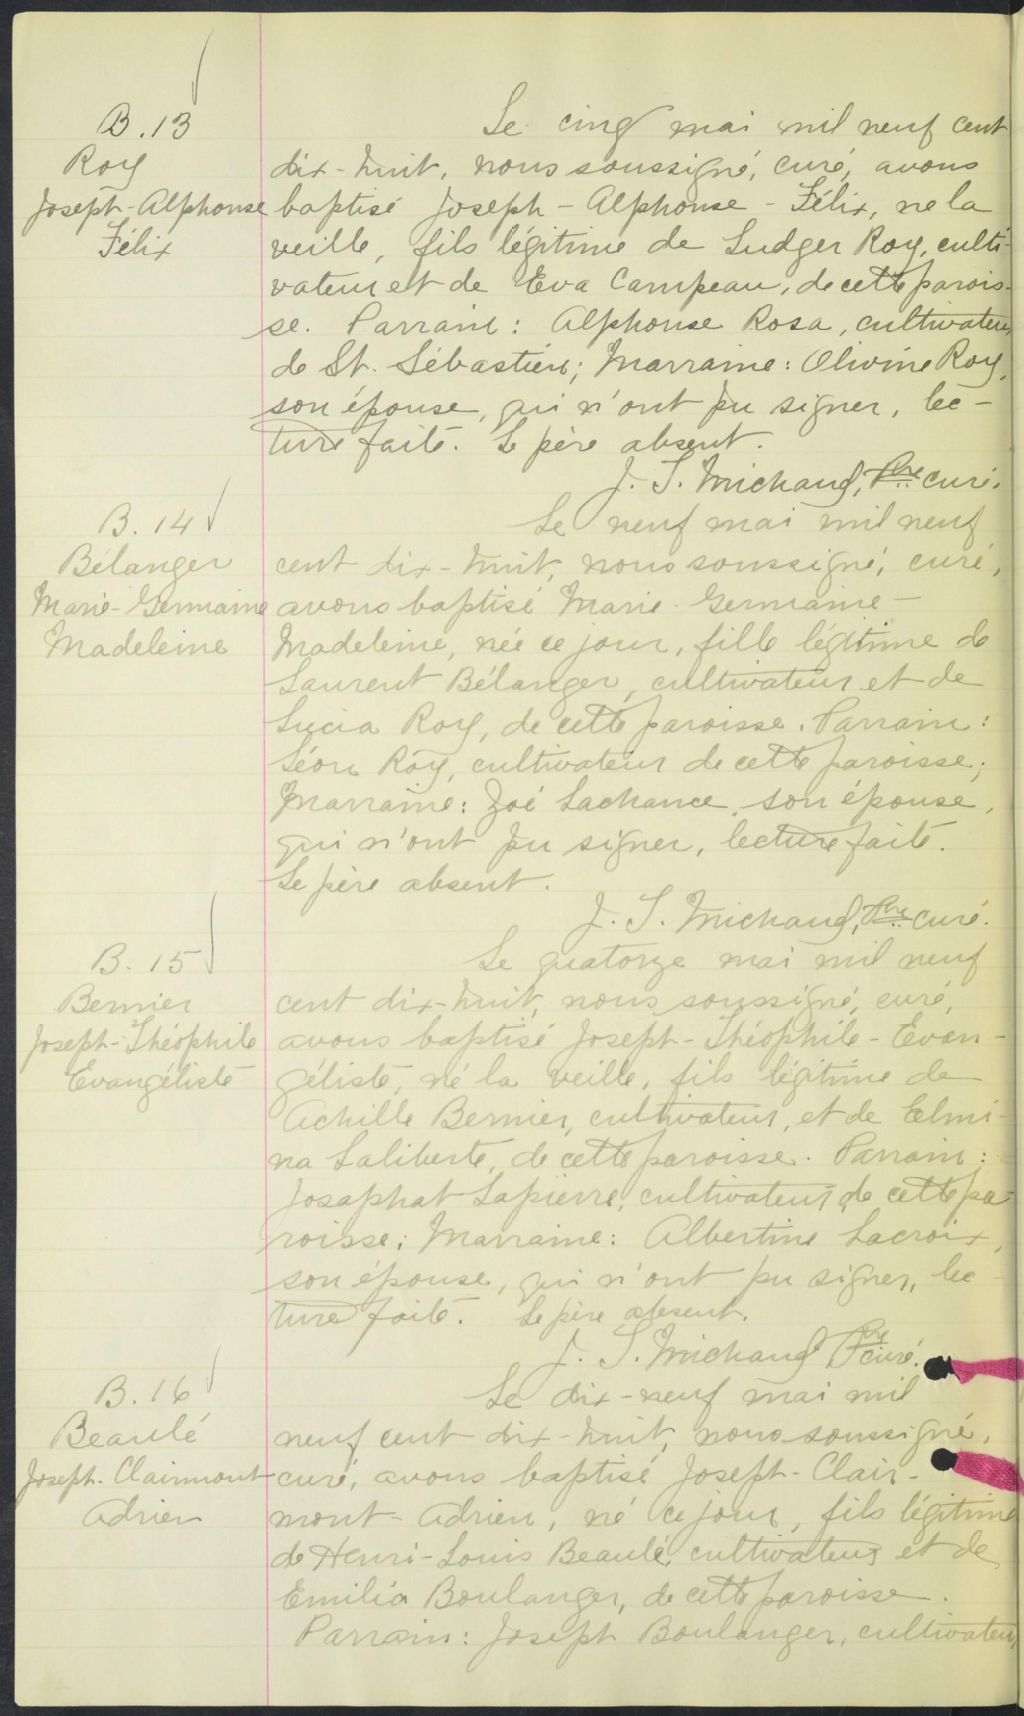 B. 13
Roy
Joseph-Alphonse
Félix
Le cinq mai mil neuf cent
dix-huit, nous soussigné, curé, avons
baptisé Joseph-Alphonse-Félix, né la
veille, fils légitime de Ludger Roy, culti-
vateur et de Eva Campeau, de cette parois-
se. Parrain: Alphonse Rosa, cultivateur
de St. Sébastien; Marraine: Olivine Roy,
son épouse, qui n'ont pu signer, lec-
ture faite. Le père absent.
J. S. Michaud, Ptre curé.
B. 14
Bélanger
Marie-Germaine
Madeleine
Le neuf mai mil neuf
cent dix-huit, nous soussigné, curé,
avons baptisé Marie-Germaine-
Madeleine, née ce jour, fille légitime de
Laurent Bélanger, cultivateur et de
Lucia Roy, de cette paroisse. Parrain:
Léon Roy, cultivateur de cette paroisse;
Marraine: Zoé Lachance, son épouse,
qui n'ont pu signer, lecture faite.
Le père absent.
J. S. Michaud, Ptre curé.
B. 15
Bernier
Joseph-Théophile
Evangéliste
Le quatorze mai mil neuf
cent dix-huit, nous soussigné, curé,
avons baptisé Joseph-Théophile-Evan-
géliste, né la veille, fils légitime de
Achille Bernier, cultivateur, et de Elmi-
na Laliberte, de cette paroisse. Parrain:
Josaphat Lapierre, cultivateur de cette pa-
roisse; Marraine: Albertine Lacroix,
son épouse, qui n'ont pu signer, lec-
ture faite. Le père absent.
J. S. Michaud Ptre curé.
B. 16
Beaulé
Joseph-Clairmont
Adrien
Le dix-neuf mai mil
neuf cent dix-huit, nous soussigné,
curé, avons baptisé Joseph-Clair-
mont-Adrien, né ce jour, fils légitime
de Henri-Louis Beaulé, cultivateur et de
Emilia Boulanger, de cette paroisse.
Parrain: Joseph Boulanger, cultivateur,